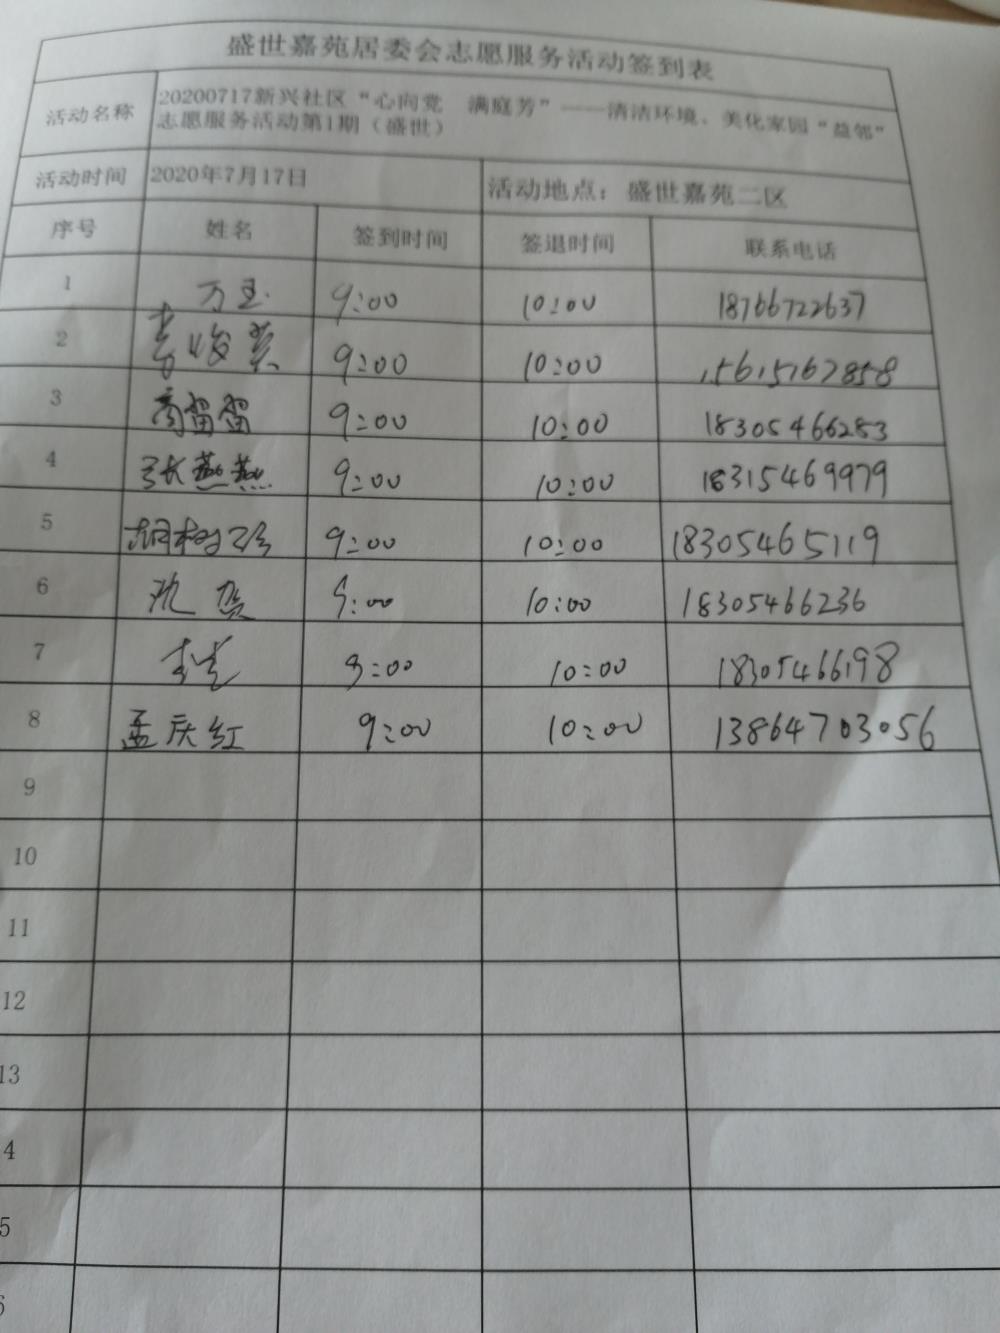 盛世嘉苑居委会志愿服务活动签到表
活动名称 20200717新兴社区“心向党 满庭芳”——清洁环境、美化家园“益邻”
志愿服务活动第1期（盛世）
活动时间 2020年7月17日 活动地点：盛世嘉苑二区
序号 姓名 签到时间 签退时间 联系电话
1 万玉 9:00 10:00 18766722637
2 9:00 10:00 15615167858
3 高留留 9:00 10:00 18305466283
4 张燕燕 9:00 10:00 18315469979
5 9:00 10:00 18305465119
6 9:00 10:00 18305466236
7 9:00 10:00 18305466198
8 孟庆红 9:00 10:00 13864703056
9
10
11
12
13
4
5
6